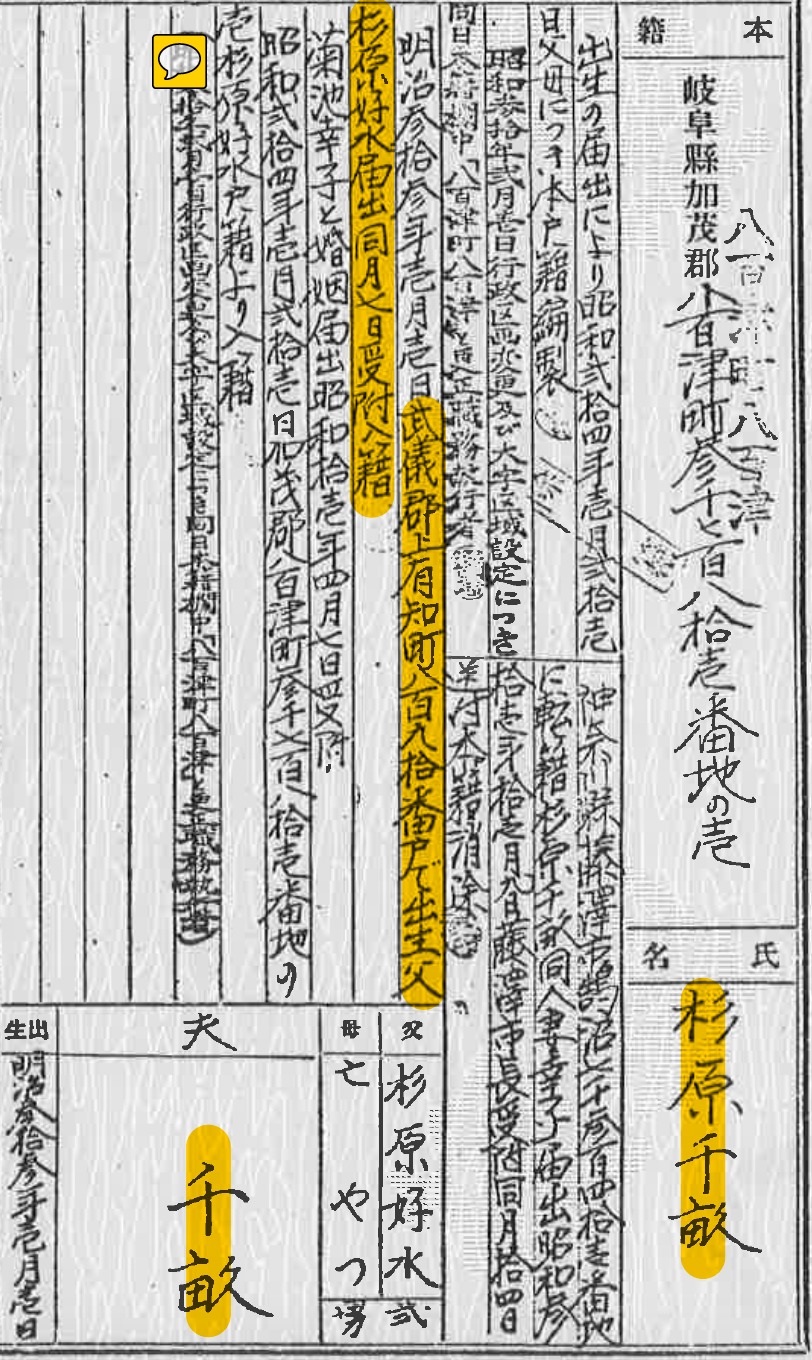 本籍
岐阜縣加茂郡八百津町参千七百八拾壱番地の壱
八百津町八百津
氏名
杉原千畝
出生の届出により昭和弐拾四年壱月弐拾壱
日父母につき本戸籍編製
昭和参拾年弐月壱日行政区画変更及び大字区域設定につき
同日本籍欄中「八百津町八百津」と更正職務執行者
神奈川縣藤澤市鵠沼六千参百四拾壱番地
に転籍杉原千畝同人妻幸子届出昭和参
拾壱年拾壱月九日藤澤市長受附同月拾四日
送付本籍消除
明治参拾参年壱月壱日武儀郡上有知町八百九拾番戸で出生父
杉原好水届出同月七日受附入籍
菊池幸子と婚姻届出昭和拾壱年四月七日受附
昭和弐拾四年壱月弐拾壱日加茂郡八百津町参千七百八拾壱番地の
壱杉原好水戸籍より入籍
父
杉原好水
母
亡 やつ
弐男
夫
千畝
出生
明治参拾参年壱月壱日